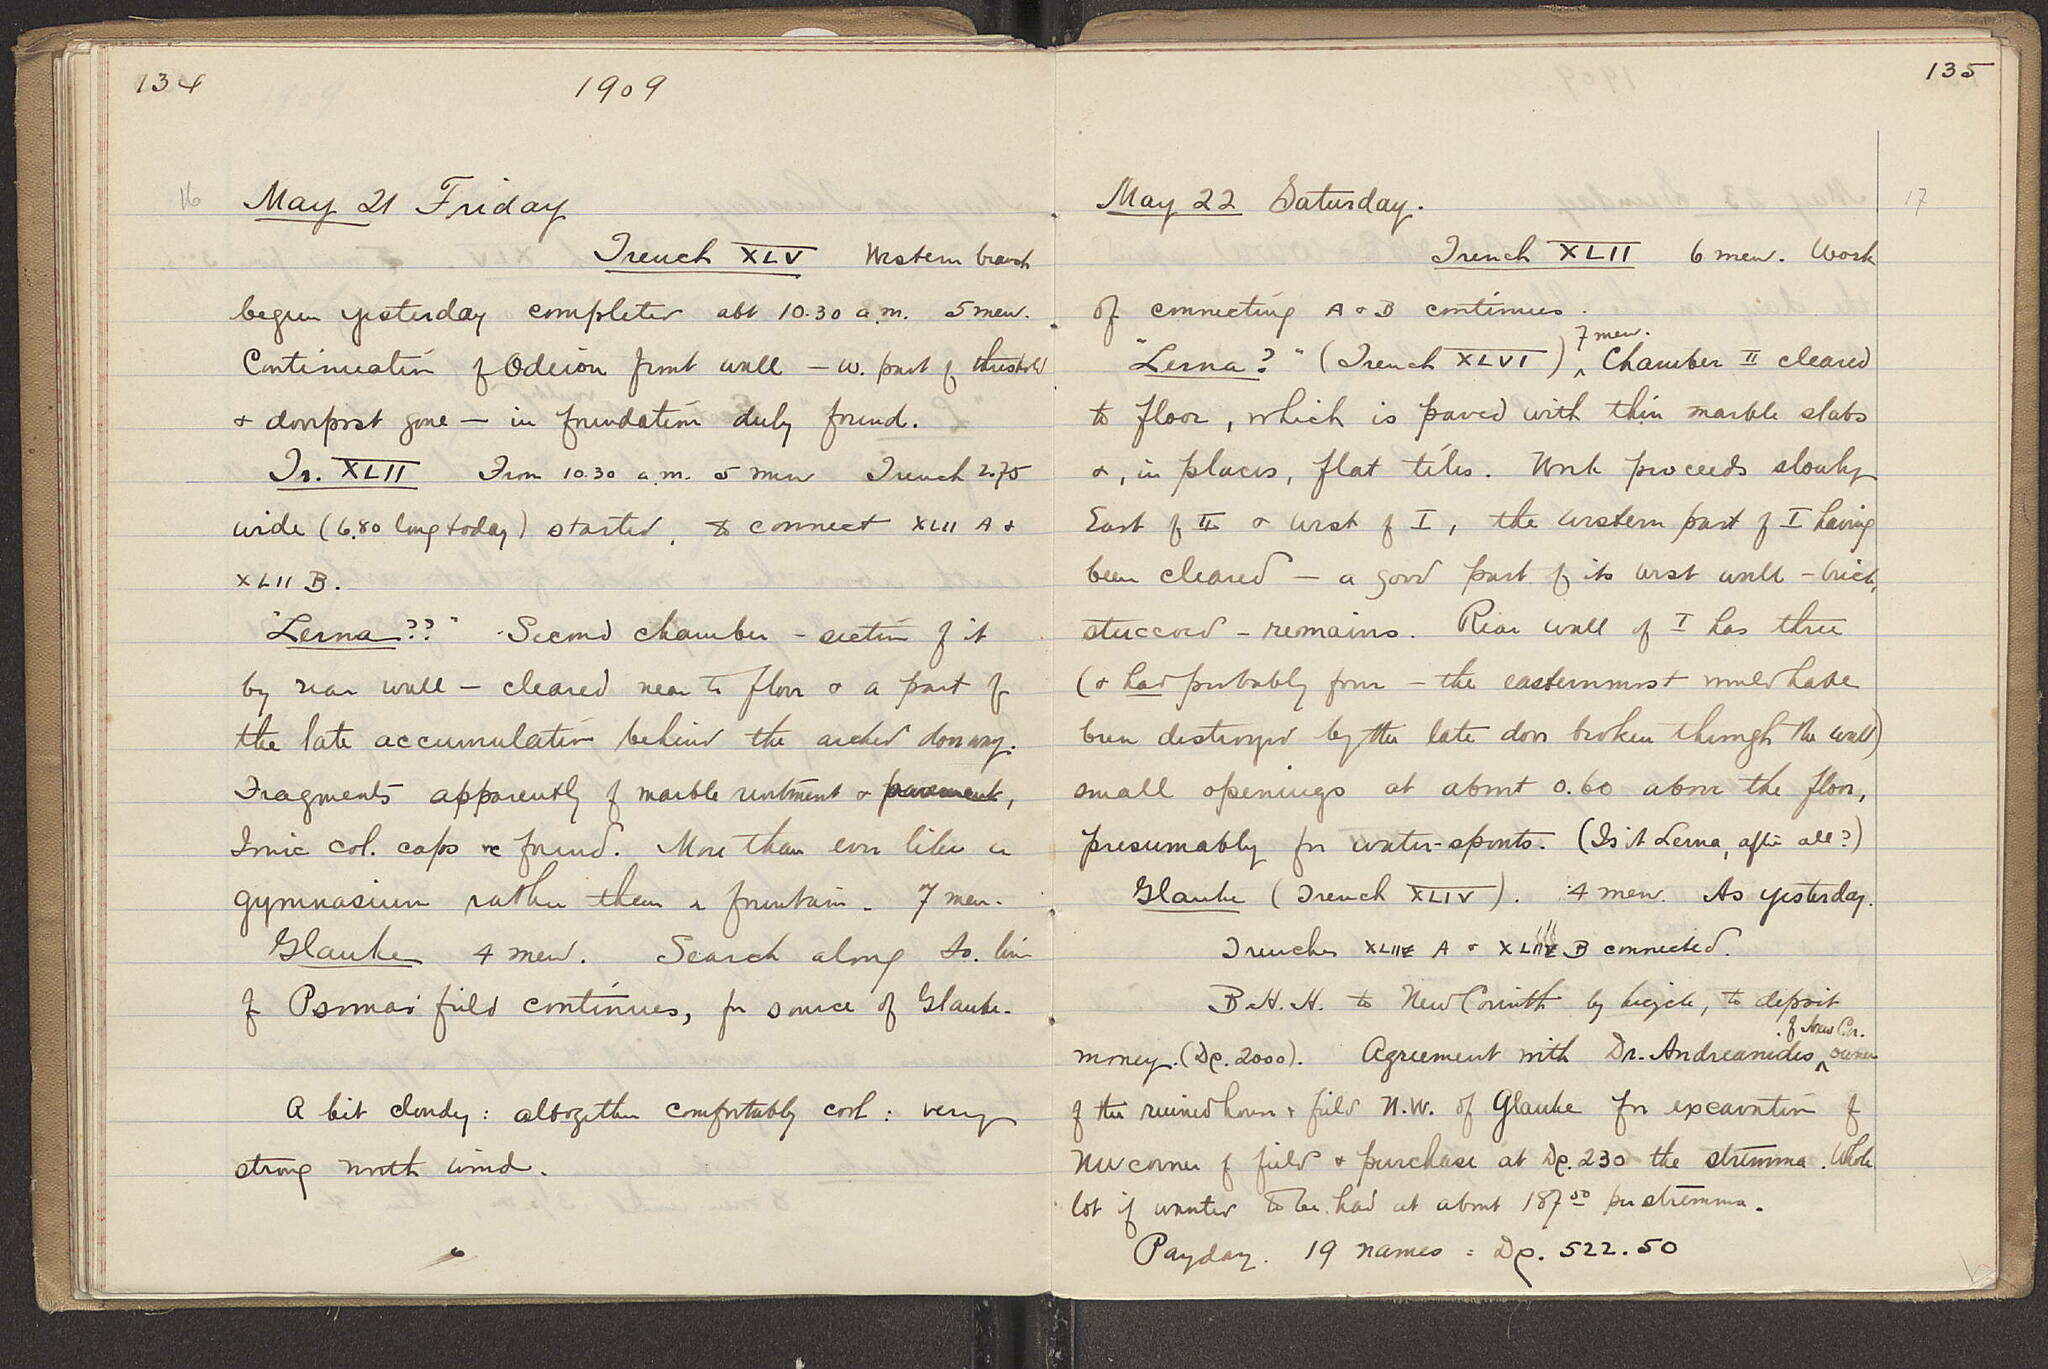 134
1909
16
May 21 Friday
Trench XLV Western branch
begun yesterday completed abt 10.30 a.m. 5 men.
Continuation of Odeion front wall – w. part of threshold
& doorpost gone – in foundation duly found.
Tr. XLII From 10.30 a.m. 5 men Trench 2.75
wide (6.80 long today) started, to connect XLII A &
XLII B.
"Lerna??" Second chamber – section of it
by rear wall – cleared near to floor & a part of
the late accumulation behind the arched doorway.
Fragments apparently of marble revetment & pavement,
Ionic col. caps &c found. More than ever like a
gymnasium rather than a fountain. 7 men.
Glauke 4 men. Search along So. line
of Psomas' field continues, for source of Glauke.
A bit cloudy: altogether comfortably cool: very
strong north wind.
135
17
May 22 Saturday.
Trench XLII 6 men. Work
of connecting A & B continues.
7 men.
"Lerna?" (Trench XLVI) ^ Chamber II cleared
to floor, which is paved with thin marble slabs
&, in places, flat tiles. Work proceeds slowly
East of II & west of I, the western part of I having
been cleared – a good part of its west wall – brick,
stuccoed – remains. Rear wall of I has three
(& had probably four – the easternmost would have
been destroyed by the late door broken through the wall)
small openings at about 0.60 above the floor,
presumably for water-spouts. (Is it Lerna, after all?)
Glauke (Trench XLIV). 4 men. As yesterday.
Trenches XLII A & XLII B connected.
B.H.H. to New Corinth by bicycle, to deposit
of New Cor.
money. (Dρ. 2000). Agreement with Dr. Andreanides ^ owner
of the ruined house & field N.W. of Glauke for excavation of
NW corner of field & purchase at Dρ. 230 the stremma. Whole
lot if wanted to be had at about 187.50 per stremma.
Payday. 19 names = Dρ. 522.50